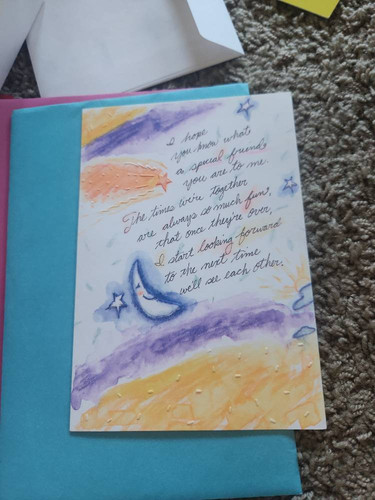 I hope
you know what
a special friend
you are to me.
The times we're together
are always so much fun,
that once they're over,
I start looking forward
to the next time
we'll see each other.